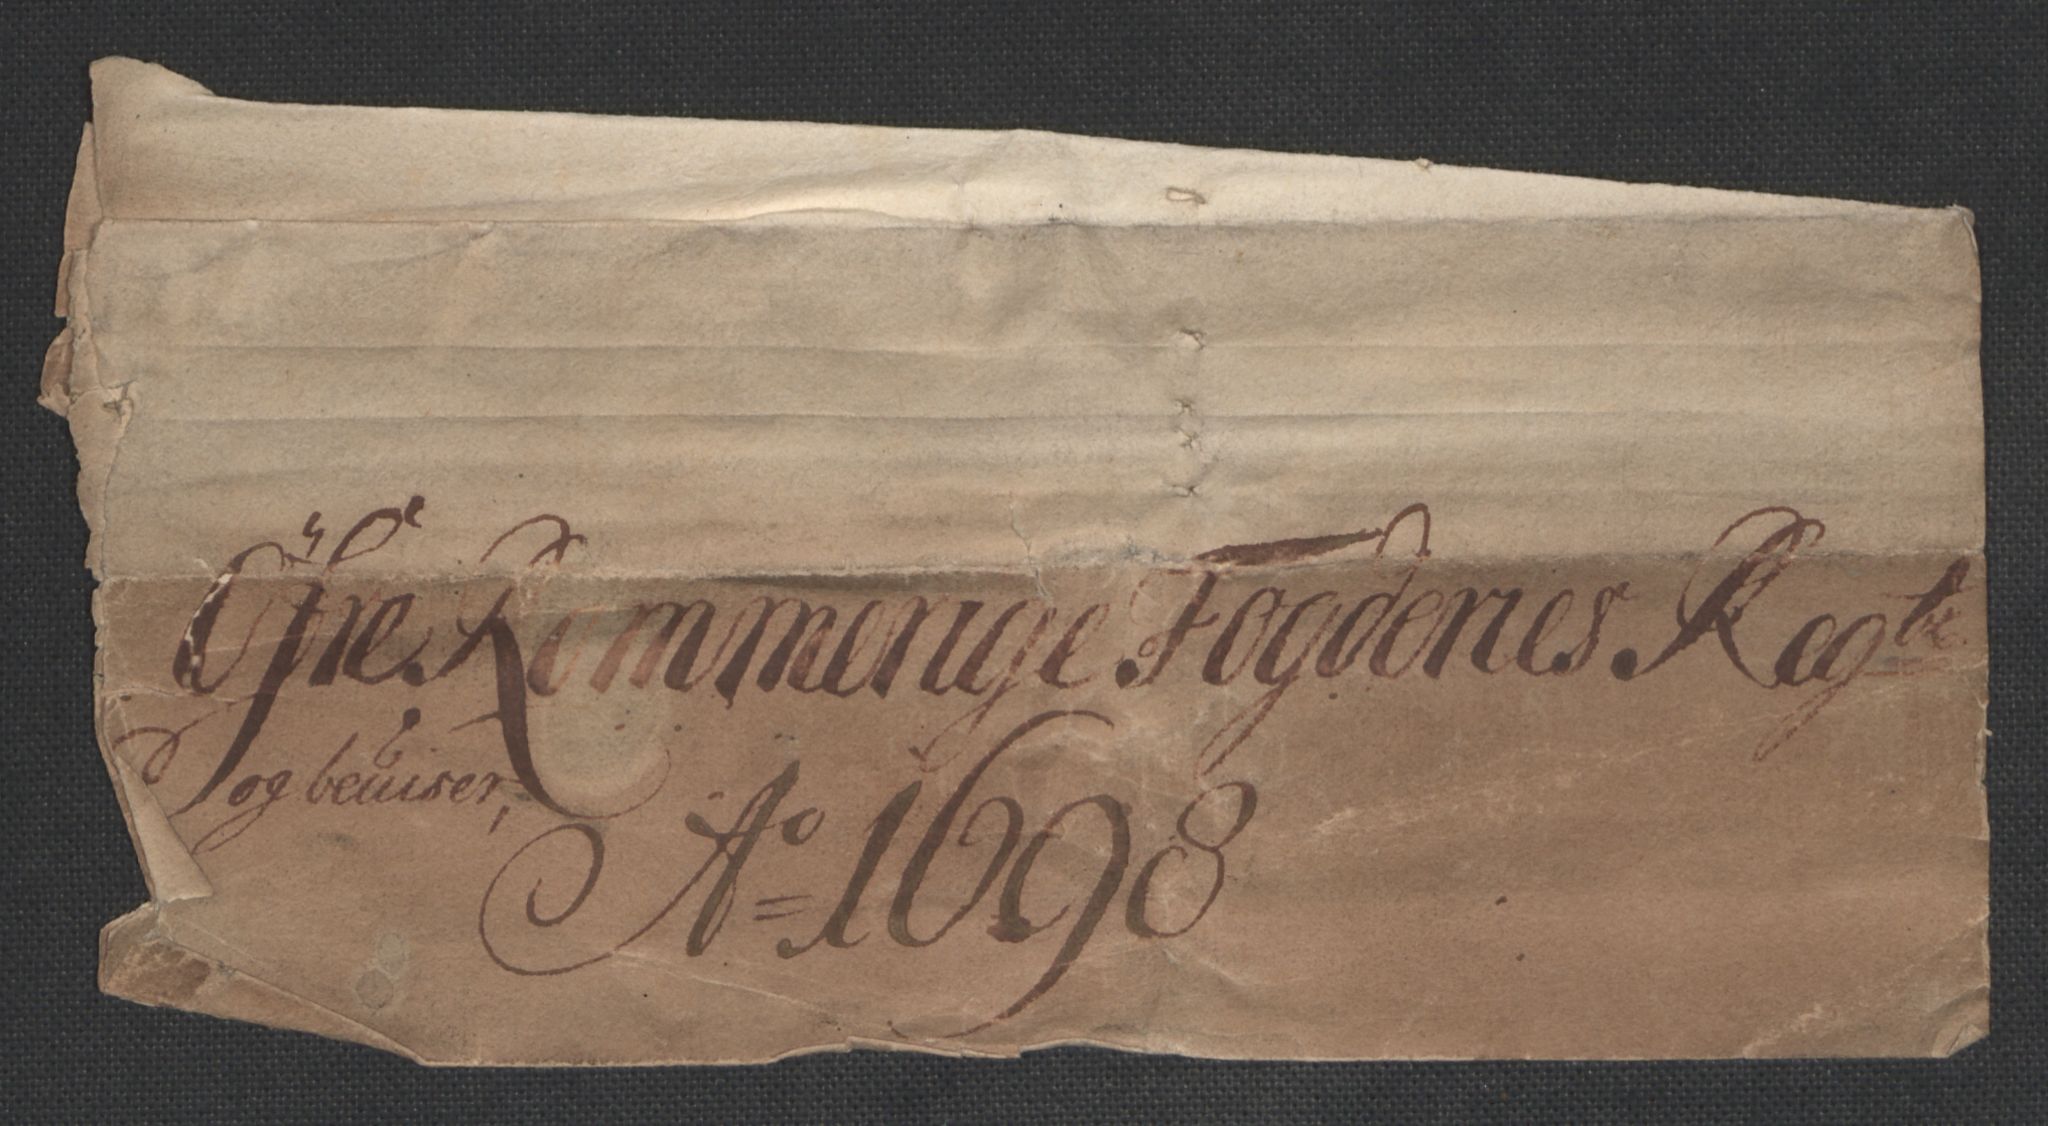 Öfre Rommerige Fogderies Regbr
og beuiser,
Ao= 1698